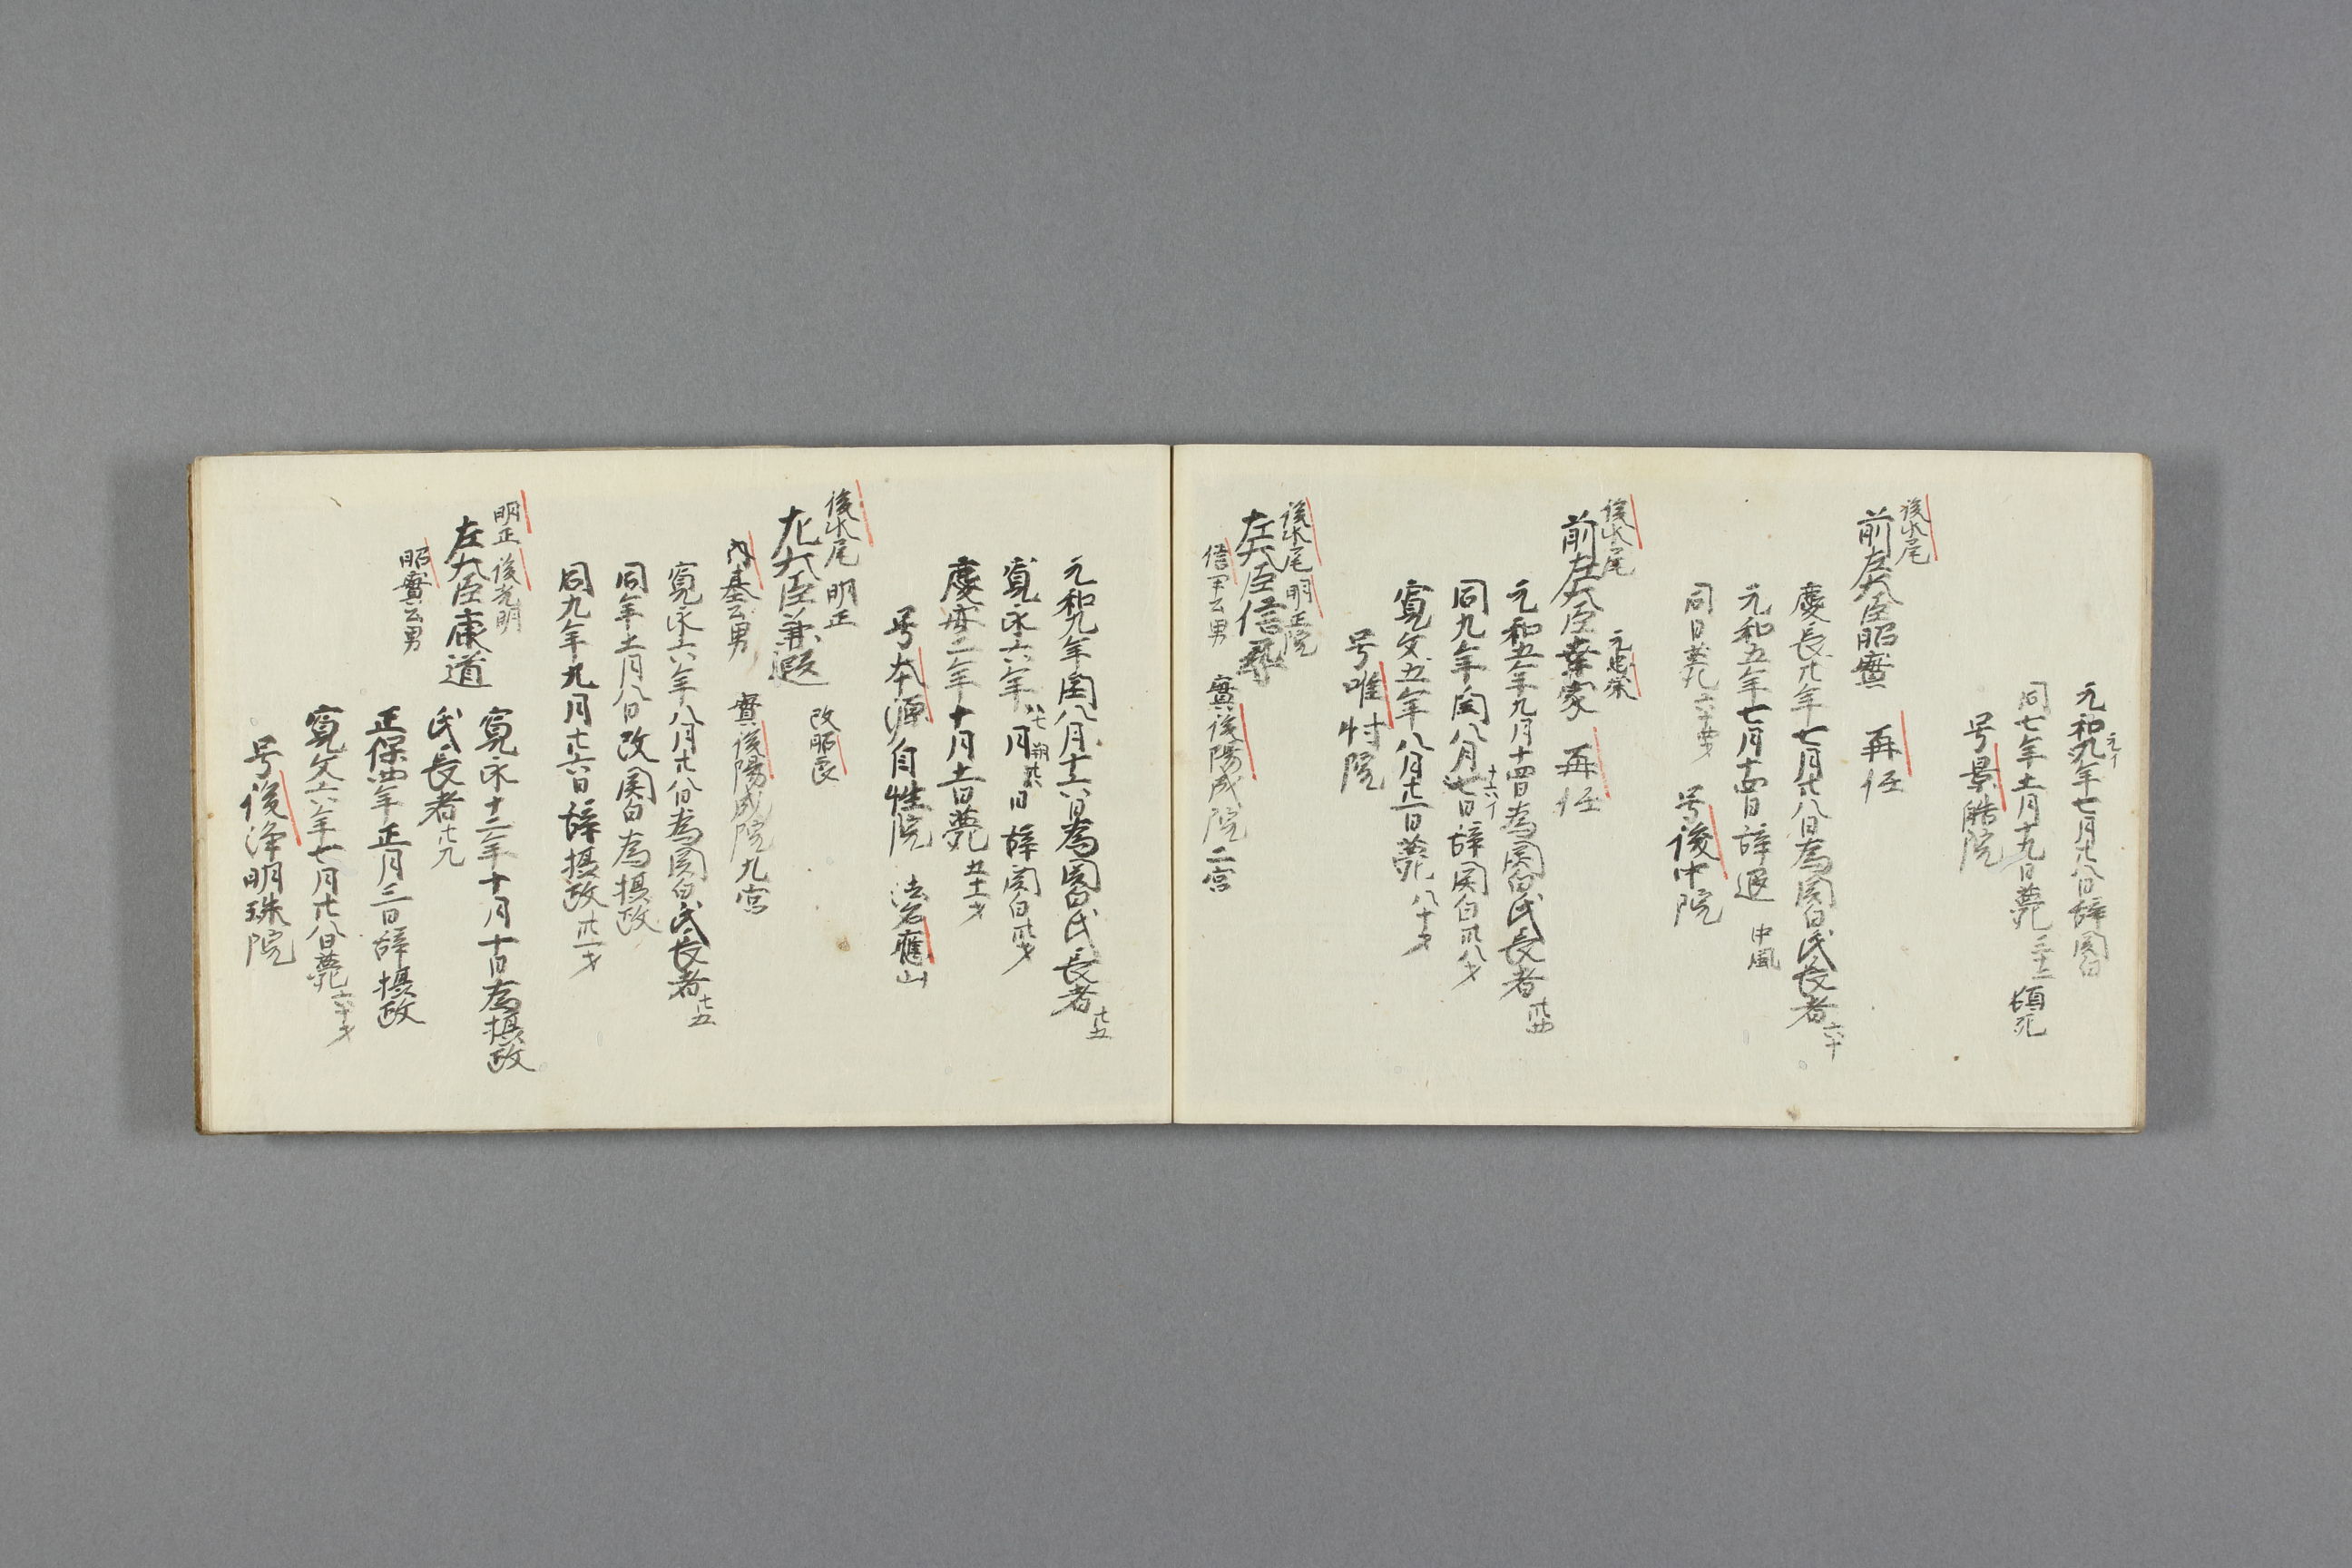 元和九年七月廿八日辞関白
元イ
同七年十一月十九日薨 三十二 頓死
号景皓院
後水尾
前左大臣昭實 再任
慶長廿年七月廿八日為関白氏長者 六十
元和五年七月十四日辞退 中風
同日薨 六十四才 号後中院
後水尾
前左大臣幸家 元忠栄 再任
元和五年九月十四日為関白氏長者 卅四
同九年閏八月七日辞関白 卅八才
十六イ
寛文五年八月廿一日薨 八十才
号唯忖院
後水尾 明正院
左大臣信尋
信尹公男 實後陽成院二宮
元和九年閏八月十六日為関白氏長者 廿五
寛永六年八月 日辞関白 卅才
慶安二年十月十一日薨 五十一才
号本源自性院 法名應山
後水尾 明正
左大臣兼遐 改昭良
内基公男 實後陽成院九宮
寛永六年八月廿八日為関白氏長者 廿五
同年十一月八日改関白為摂政
同九年九月廿六日辞摂政 卅一才
明正 後光明
左大臣康道
昭實公男
寛永十二年十月十日為摂政
氏長者 廿九
正保四年正月三日辞摂政
寛文六年七月廿八日薨 六十才
号後浄明珠院